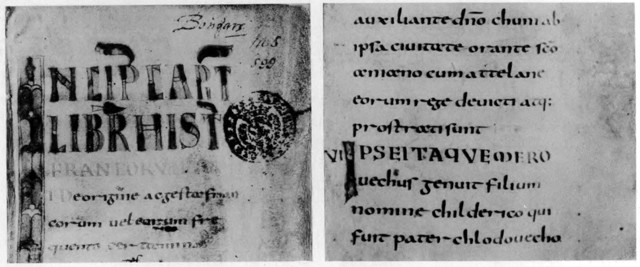 Bondars
599
INCIPCAPT
LIBRHIST
FRANCORV
I De origine ac gestæ fran
corum vel eorum fre
quenti certamina
auxiliante dño chuni ab
ipsa civitate orante sco
aniano cum attelane
eorum rege devicti atq:
prostrati sunt
VI IPSE ITAQVE MERO
vechus genuit filium
nomine childerico qui
fuit pater chlodovecho